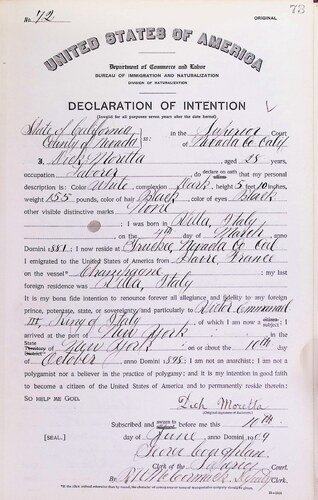 No. 72 ORIGINAL 73
UNITED STATES OF AMERICA
Department of Commerce and Labor
BUREAU OF IMMIGRATION AND NATURALIZATION
DIVISION OF NATURALIZATION
DECLARATION OF INTENTION
(Invalid for all purposes seven years after the date hereof)
State of California
County of Nevada ss: In the Superior Court
of Nevada Co Calif
I, Dick Moretta, aged 28 years,
occupation Laborer, do declare on oath that my personal
description is: Color White, complexion Dark, height 5 feet 10 inches,
weight 155 pounds, color of hair Black, color of eyes Black
other visible distinctive marks None
; I was born in Italy
on the 4th day of March, anno
Domini 1881; I now reside at Truckee Nevada Co Cal
I emigrated to the United States of America from Havre, France
on the vessel* Champagne; my last
foreign residence was Italy
It is my bona fide intention to renounce forever all allegiance and fidelity to any foreign
prince, potentate, state, or sovereignty, and particularly to Victor Emmanuel
III, King of Italy, of which I am now a subject; I
arrived at the port of New York, in the
State of New York on or about the 10th day
of October, anno Domini 1898; I am not an anarchist; I am not a
polygamist nor a believer in the practice of polygamy; and it is my intention in good faith
to become a citizen of the United States of America and to permanently reside therein:
SO HELP ME GOD.
Dick Moretta
(Original signature of declarant.)
Subscribed and sworn to before me this 10th
[SEAL.] day of June, anno Domini 1909
Clerk of the Superior Court.
By Clerk.